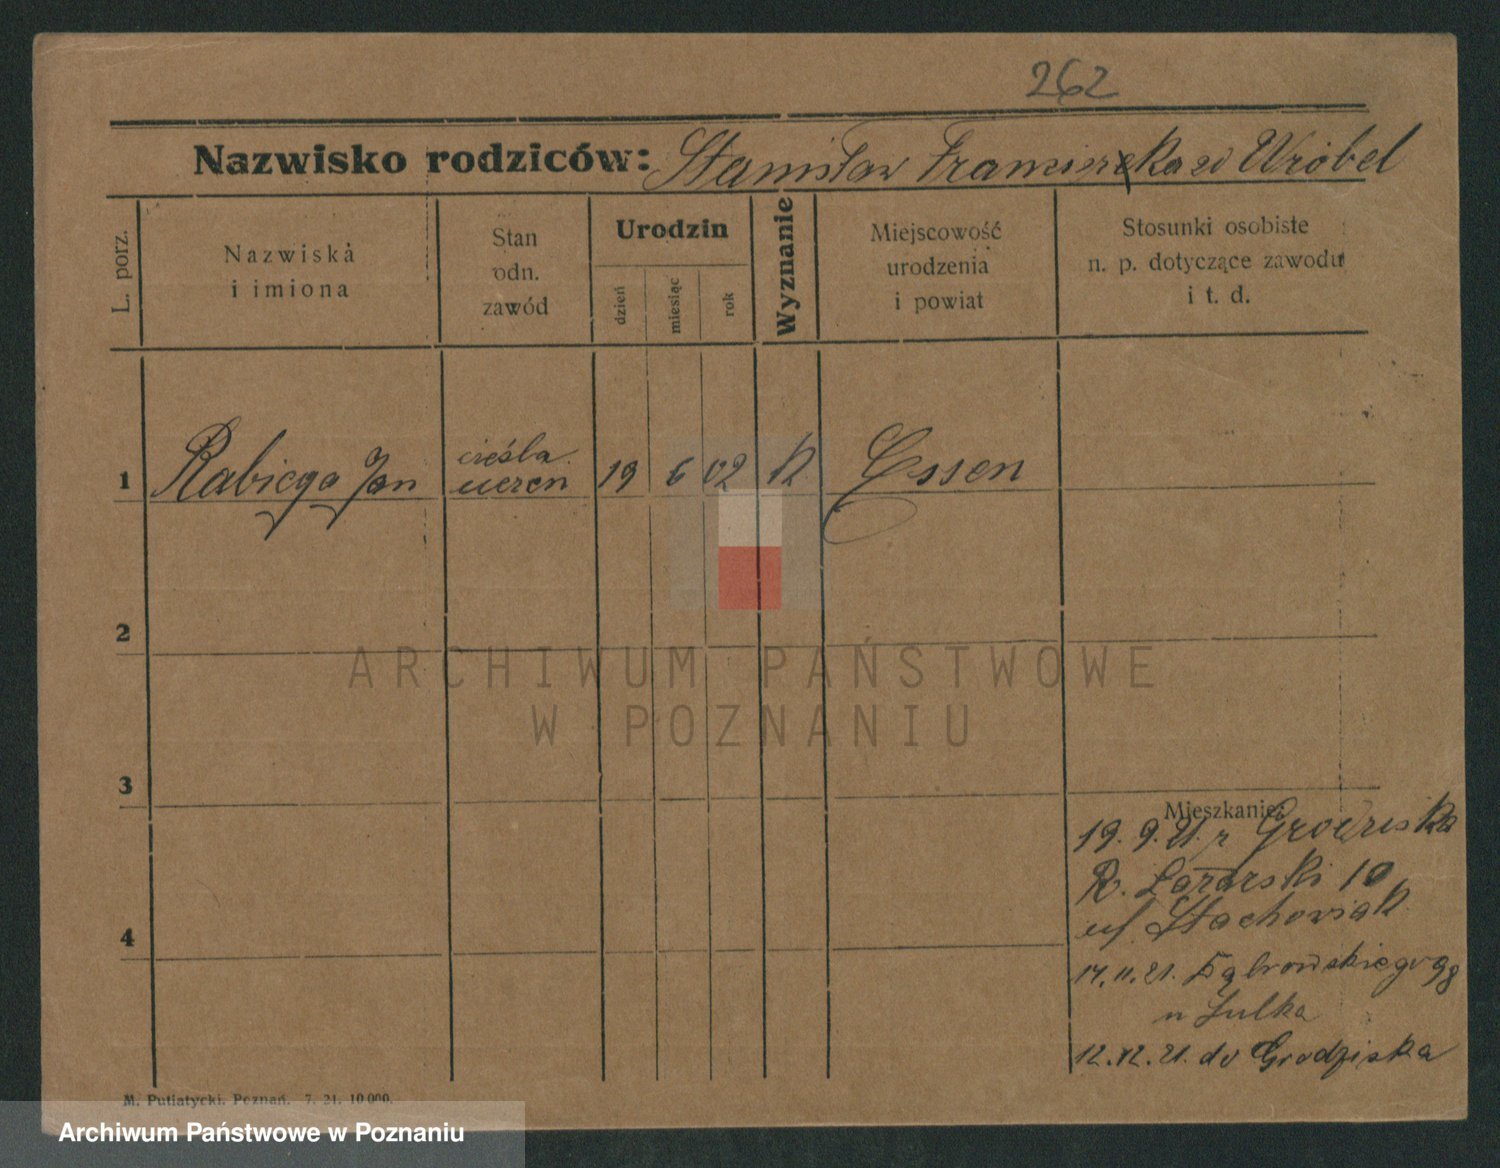 262
Nazwisko rodziców: Stanisław Franciszka zd Wróbel
L. porz.
Nazwiska
i imiona
Stan
odn.
zawód
Urodzin
dzień
miesiąc
rok
Wyznanie
Miejscowość
urodzenia
i powiat
Stosunki osobiste
n. p. dotyczące zawodu
i t. d.
1 Rabiega Jan
cieśla
uczeń
19 6 02 k Essen
2
3
4
Mieszkanie:
19. 9. 21. z Grodziska
R. Łazarski 10
u/ Stachowiak
14. 11. 21. Dąbrowskiego 98
u Julka
12. 12. 21. do Grodziska
M. Putiatycki. Poznań. 7. 21. 10000.
ARCHIWUM PAŃSTWOWE
W POZNANIU
Archiwum Państwowe w Poznaniu